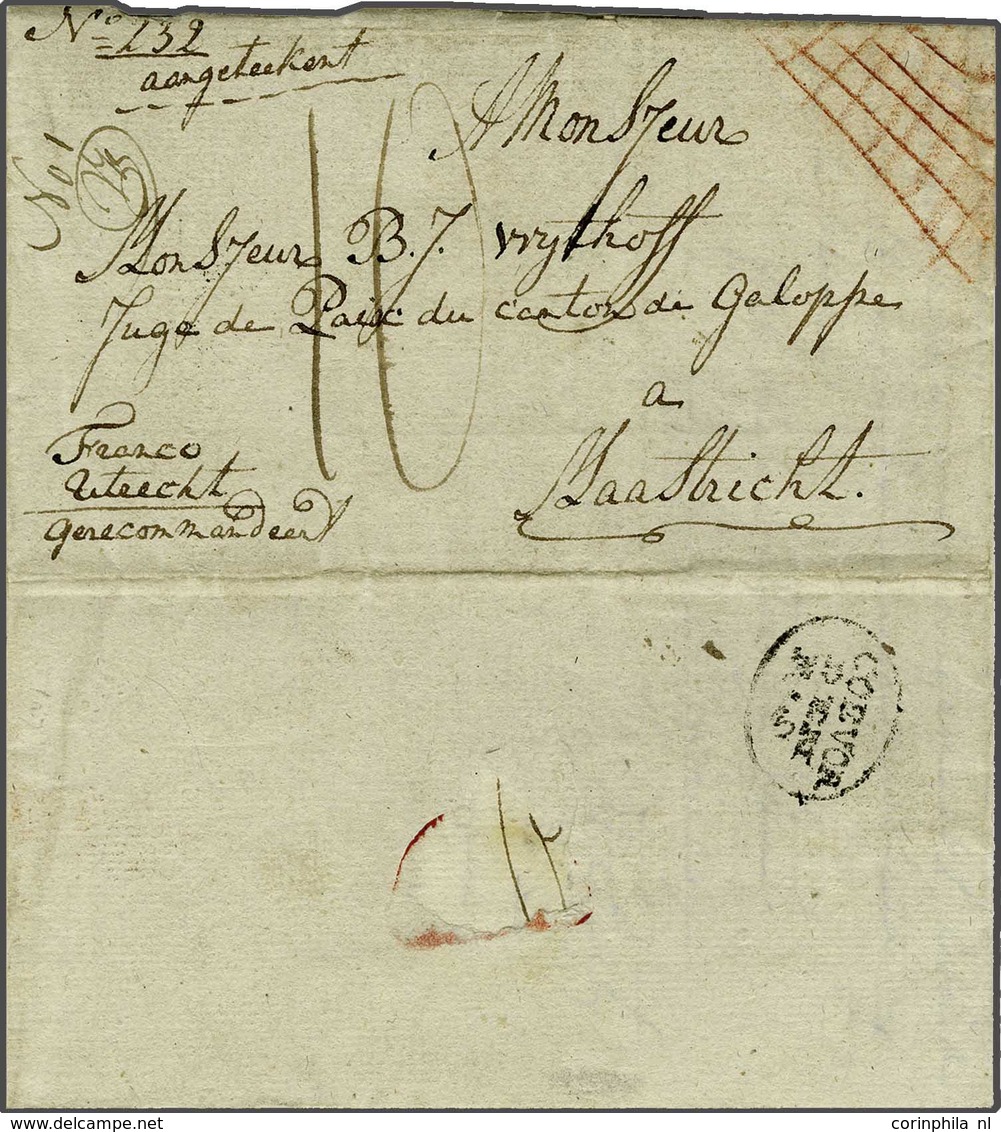 No 232
aangeteekent
No 1
A MonSieur
MonSieur B. J. vrythoff
Juge de Paix du canton de Galoppe
a
MaaStricht.
10
Franco
Utrecht
gerecommandeert
COEVOR
corinphila nl